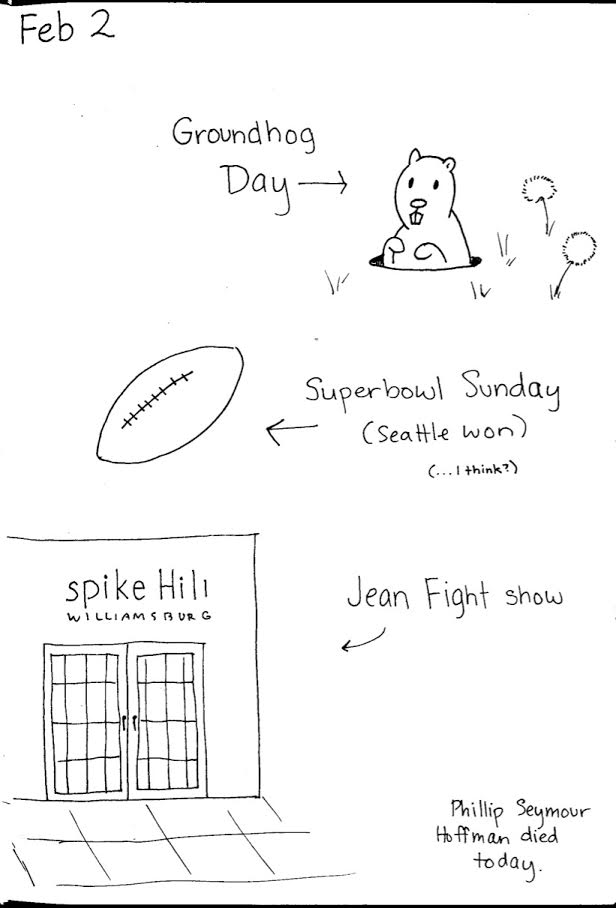 Feb 2
Groundhog
Day
Superbowl Sunday
(Seattle won)
(...I think?)
spike Hill
WILLIAMSBURG
Jean Fight show
Phillip Seymour
Hoffman died
today.